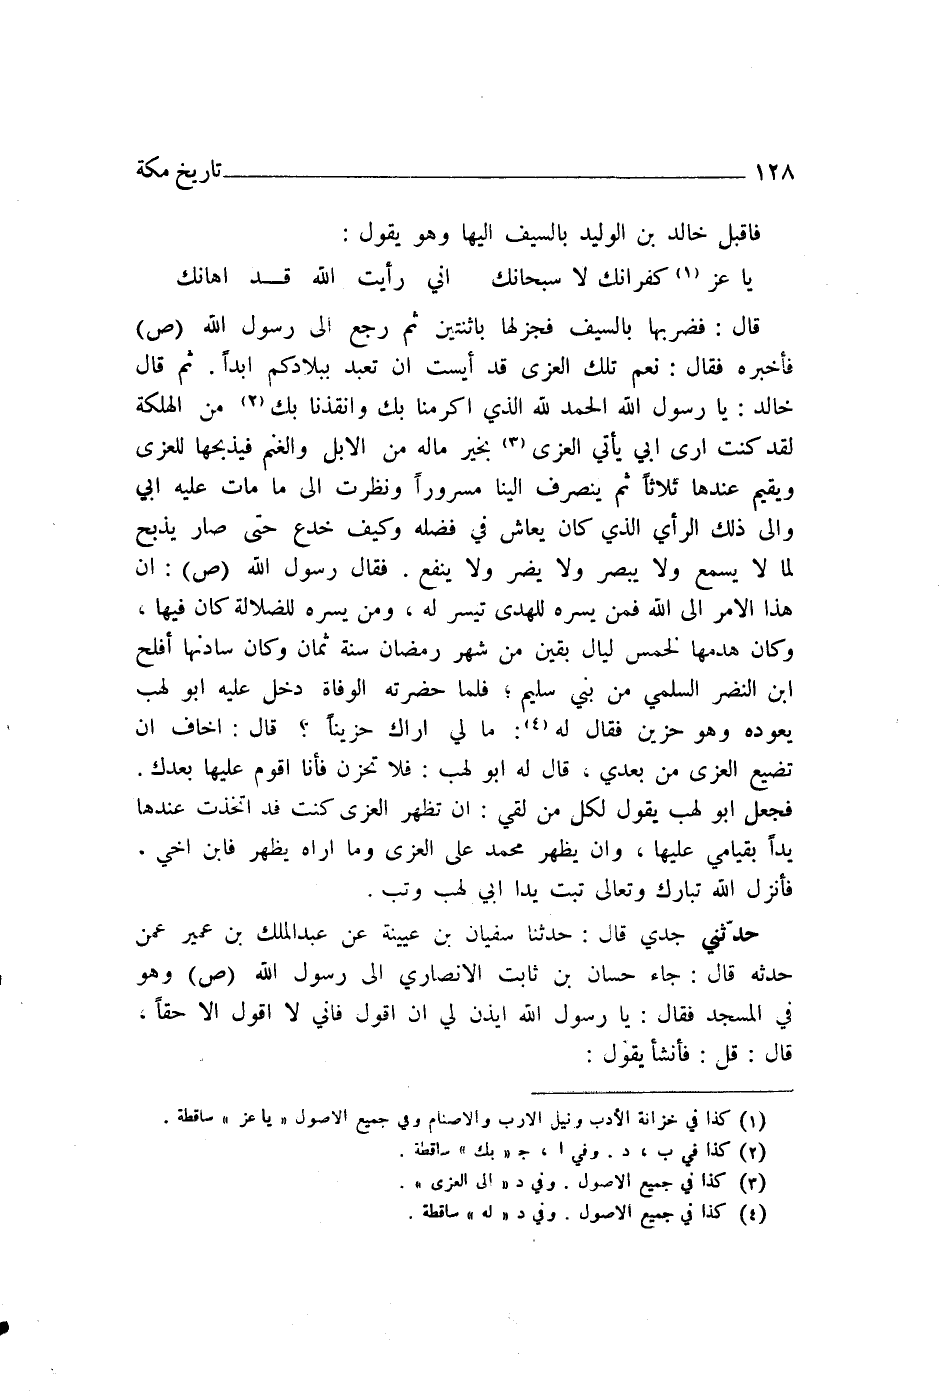 ١٢٨ تاريخ مكة
فاقبل خالد بن الوليد بالسيف اليها وهو يقول :
يا عز (١) كفرانك لا سبحانك اني رأيت الله قــد اهانك
قال : فضربها بالسيف فجزلها باثنتين ثم رجع الى رسول الله (ص)
فأخبره فقال : نعم تلك العزى قد أيست ان تعبد ببلادكم ابداً . ثم قال
خالد : يا رسول الله الحمد لله الذي اكرمنا بك وانقذنا بك (٢) من الهلكة
لقد كنت ارى ابي يأتي العزى (٣) بخير ماله من الابل والغنم فيذبحها للعزى
ويقيم عندها ثلاثاً ثم ينصرف الينا مسروراً ونظرت الى ما مات عليه ابي
والى ذلك الرأي الذي كان يعاش في فضله وكيف خدع حتى صار يذبح
لما لا يسمع ولا يبصر ولا يضر ولا ينفع . فقال رسول الله (ص) : ان
هذا الامر الى الله فمن يسره للهدى تيسر له ، ومن يسره للضلالة كان فيها ،
وكان هدمها لخمس ليال بقين من شهر رمضان سنة ثمان وكان سادنها أفلح
ابن النضر السلمي من بني سليم ؛ فلما حضرته الوفاة دخل عليه ابو لهب
يعوده وهو حزين فقال له (٤) : ما لي اراك حزيناً ؟ قال : اخاف ان
تضيع العزى من بعدي ، قال له ابو لهب : فلا تحزن فأنا اقوم عليها بعدك .
فجعل ابو لهب يقول لكل من لقي : ان تظهر العزى كنت قد اتخذت عندها
يداً بقيامي عليها ، وان يظهر محمد على العزى وما اراه يظهر فابن اخي .
فأنزل الله تبارك وتعالى تبت يدا ابي لهب وتب .
حدّثني جدي قال : حدثنا سفيان بن عيينة عن عبدالملك بن عمير عمن
حدثه قال : جاء حسان بن ثابت الانصاري الى رسول الله (ص) وهو
في المسجد فقال : يا رسول الله ايذن لي ان اقول فاني لا اقول الا حقاً ،
قال : قل : فأنشأ يقول :
(١) كذا في خزانة الأدب ونيل الارب والاصنام وفي جميع الاصول « يا عز » ساقطة .
(٢) كذا في ب ، د . وفي ا ، ج « بك » ساقطة .
(٣) كذا في جميع الاصول . وفي د « الى العزى » .
(٤) كذا في جميع الاصول . وفي د « له » ساقطة .